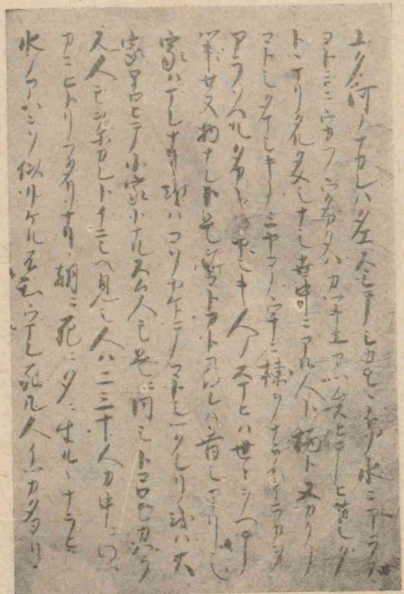 ユク河ノナカレハタエスシテシカモヽトノ水ニアラス
ヨトミニウカフウタカタハカツキエカツムスヒテヒサシク
トヽマリタルタメシナシ世中ニアル人ト栖ト又カクノコ
トシタマシキノミヤコノウチニ棟ヲナラヘイラカヲ
アラソヘルタカキイヤシキ人ノスマヒハ世々ヲヘテツキ
セヌ物ナレト是ヲマコトカト尋レハ昔シアリシ
家ハマレナリ或ハコソヤケテコトシツクレリ或ハ大
家ホロヒテ小家トナルスム人モ是ニ同シトコロモカハラ
ス人モヲホカレトイニシヘ見シ人ハ二三十人カ中ニワツ
カニヒトリフタリナリ朝ニ死ニ夕ニ生ルヽナラヒ
水ノアハニソ似リケル不知ウマレ死ル人イツカタヨリ